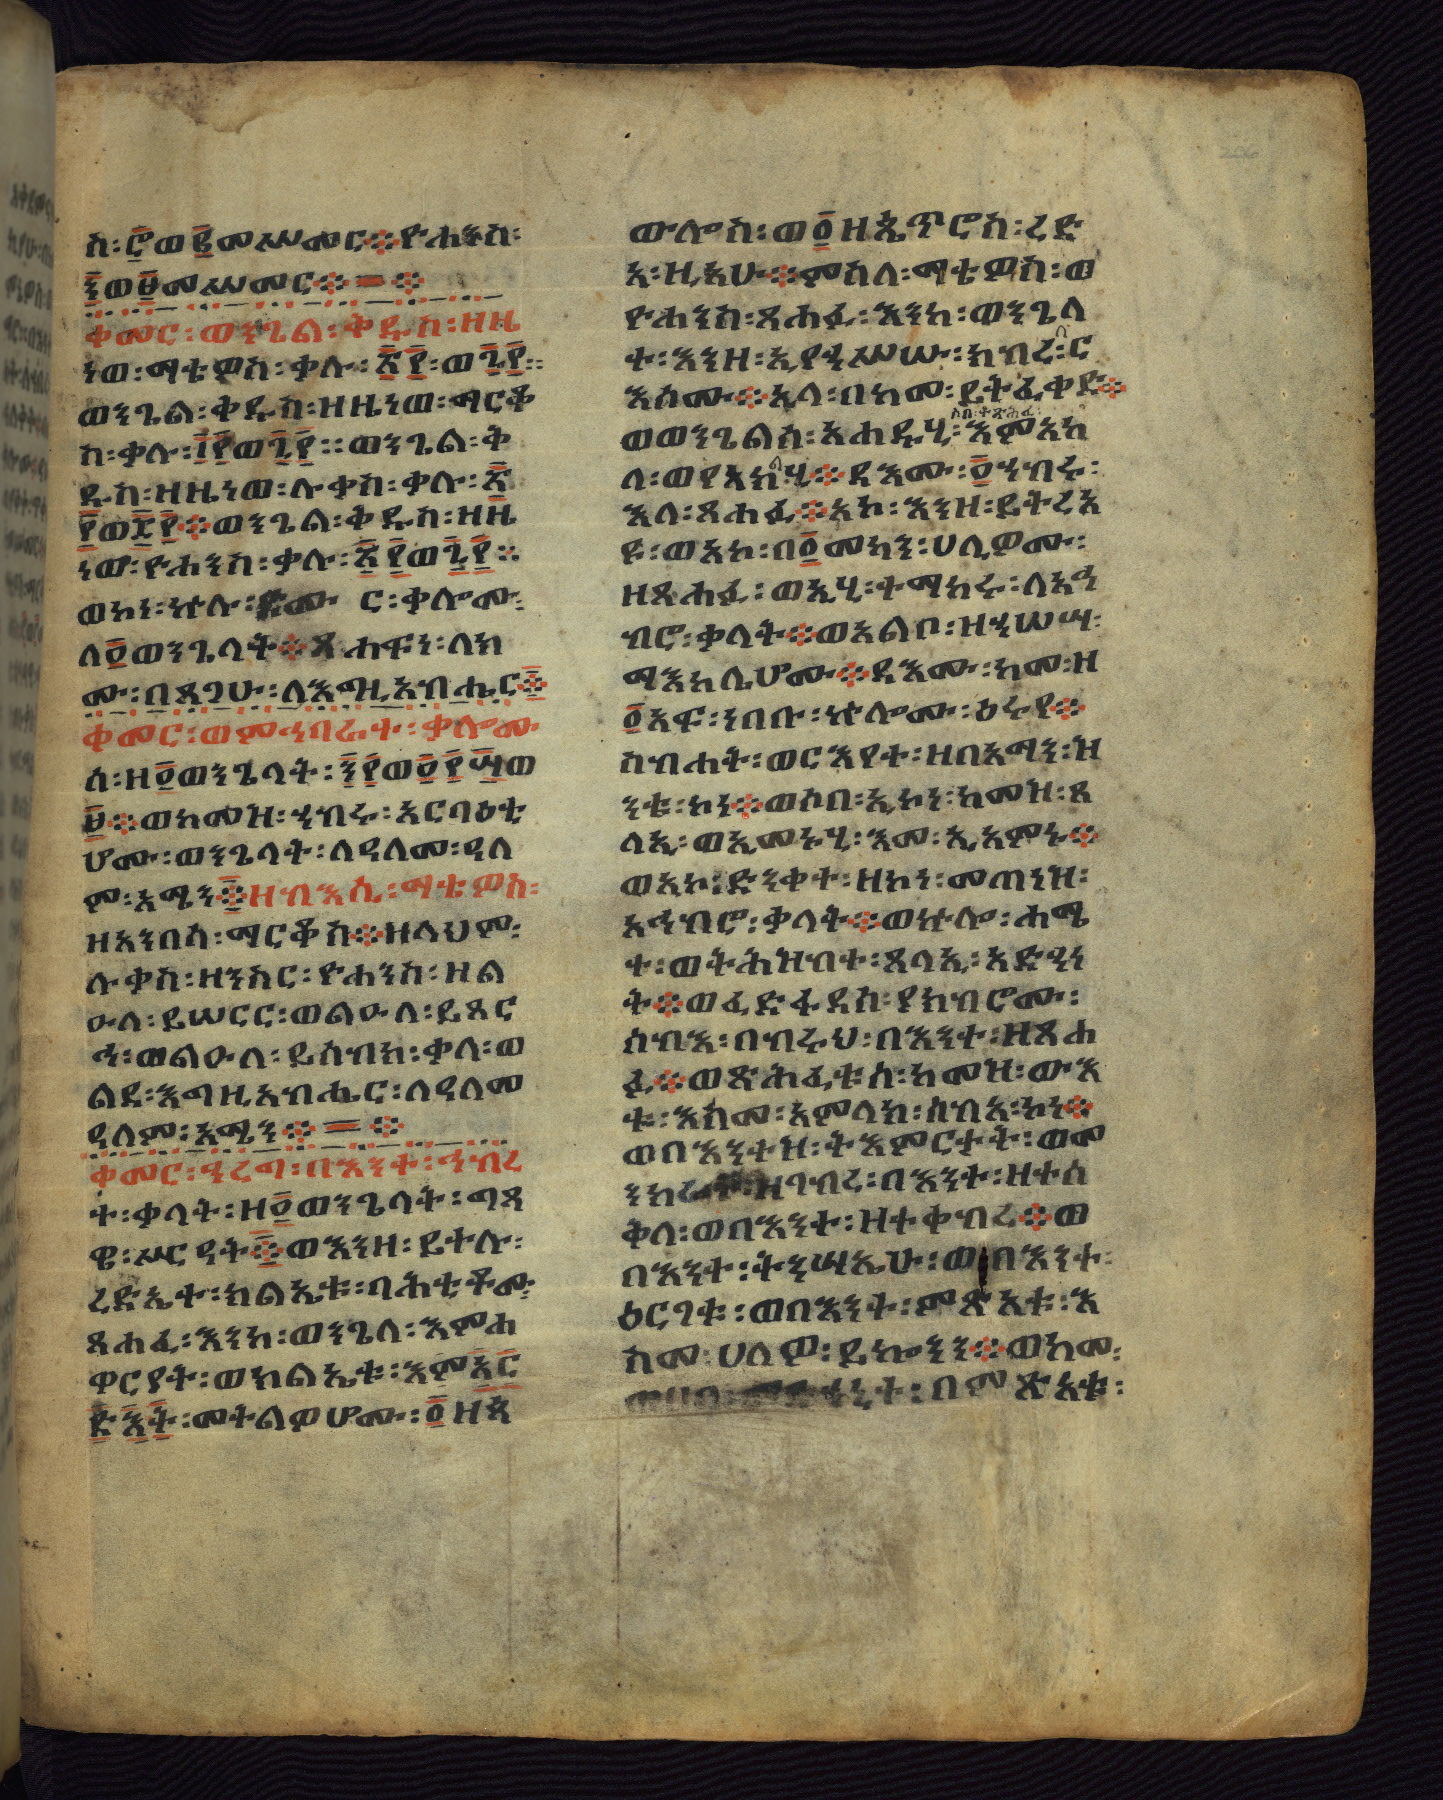 ስ፡ ፷ወ፪መኣመር፨ ዮሐንስ፡
፶ወ፱መኣመር፨ ፨
ቀመር፡ ወንጌል፡ ቅዱስ፡ ዘዜ
ነወ፡ ማቴዎስ፡ ቃሉ፡ ፳፻፡ ወ፯፻፡፡
ወንጌል፡ ቅዱስ፡ ዘዜነወ፡ ማርቆ
ስ፡ ቃሉ፡ ፲፻ወ፯፻፡፡ ወንጌል፡ ቅ
ዱስ፡ ዘዜነወ፡ ሉቃስ፡ ቃሉ፡ ፳
፻ወ፰፻፨ ወንጌል፡ ቅዱስ፡ ዘዜ
ነወ፡ ዮሐንስ፡ ቃሉ፡ ፳፻ወ፯፻፡፡
ወኮነ፡ ኵሉ፡ ር፡ ቃሎሙ፡
ለ፬ወንጌላት፨ ጸሐፍነ፡ ለክ
ሙ፡ በጸጋሁ፡ ለእግዚአብሔር፨
ቀመር፡ ወምዕባሬት፡ ቃሎሙ
ሰ፡ ዘ፬ወንጌላት፡ ፶፻ወ፬፻፵ወ
፱፨ ወከመዝ፡ ኅብሩ፡ አርባዕቲ
ሆሙ፡ ወንጌላት፡ ለዓለመ፡ ዓለ
ም፡ አሜን፨ ዘብእሲ፡ ማቴዎስ፡
ዘአንበሳ፡ ማርቆስ፨ ዘላህም፡
ሉቃስ፡ ዘንስር፡ ዮሐንስ፡ ዘል
ዑለ፡ ይሠርር፡ ወልዑለ፡ ይጸር
ኅ፡ ወልዑለ፡ ይሰብክ፡ ቃለ፡ ወ
ልደ፡ እግዚአብሔር፡ ለዓለመ
ዓለም፡ አሜን፨ ፨
ቀመር፡ ዓረግ፡ በእንተ፡ ኅብረ
ተ፡ ቃላት፡ ዘ፬ወንጌላት፡ ግጻ
ዌ፡ ሥርዓት፨ ወእንዘ፡ ይተሉ፡
ረድኤተ፡ ክልኤቱ፡ ባሕቲቶሙ፡
ጸሐፊ፡ እንከ፡ ወንጌለ፡ እምሐ
ዋርያት፡ ወክልኤቱ፡ እምአር
ድእት፡ መተልዎሆሙ፡ ፬ዘጳ
ውሎስ፡ ወ፬ዘጴጥሮስ፡ ረድ
አ፡ ዚአሁ፨ ምስለ፡ ማቴዎስ፡ ወ
ዮሐንስ፡ ጸሐፊ፡ እንከ፡ ወንጌላ
ተ፡ እንዘ፡ ኢየኃሥሡ፡ ክብረ፡ ር
እሶሙ፨ አላ፡ በከመ፡ ይትፈቀድ፨
ወወንጌልሰ፡ አሐዱሂ፡ እምአከ
ላ፡ ወየአክልሂ፨ ዳእሙ፡ ፬ኅብሩ፡
እለ፡ ጸሐፊ፨ አኮ፡ እንዘ፡ ይትረአ
ዩ፡ ወአኮ፡ በ፬መካን፡ ሀሊዎሙ፡
ዘጸሐፊ፡ ወኢሂ፡ ተማከሩ፡ ለአኅ
ብሮ፡ ቃላት፨ ወአልቦ፡ ዘኃሠሣ፡
ማእከሊሆሙ፨ ዳእሙ፡ ከመ፡ ዘ
፬አፍ፡ ነበቡ፡ ኵሎሙ፡ ዕሩየ፨
ስብሐት፡ ወርእየተ፡ ዘበአማን፡ ዝ
ንቱ፡ ኮነ፨ ወሶበ፡ ኢኮነ፡ ከመዝ፡ ጸ
ላኢ፡ ወኢመኑሂ፡ እመ፡ ኢአምኑ፨
ወአኮ፡ ድንቀተ፡ ዘኮነ፡ መጠነዝ፡
አኅብሮ፡ ቃላት፨ ወኵሎ፡ ሐሜ
ተ፡ ወትሕዝብተ፡ ጸላኢ፡ አድኃነ
ት፨ ወፈድፋዳሰ፡ ያከብሮሙ፡
ሰብአ፡ በብሩህ፡ በእንተ፡ ዘጸሐ
ፊ፨ ወጽሕፈቱሰ፡ ከመዝ፡ ውእ
ቱ፡ እስመ፡ አምላክ፡ ሰብአ፡ ኮነ፨
ወበእንተዝ፡ ትእምርታት፡ ወመ
ንክራተ፡ ዘገብረ፡ በእንተ፡ ዘተሰ
ቅለ፡ ወበእንተ፡ ዝተቀብረ፨ ወ
በእንተ፡ ትንሣኤሁ፡ ወበእንተ፡
ዕርገቱ፡ ወበእንተ፡ ምጽአቱ፡ እ
ስመ፡ ሀለዎ፡ ይኰንን፨ ወከመ፡
በምጽአቱ፡